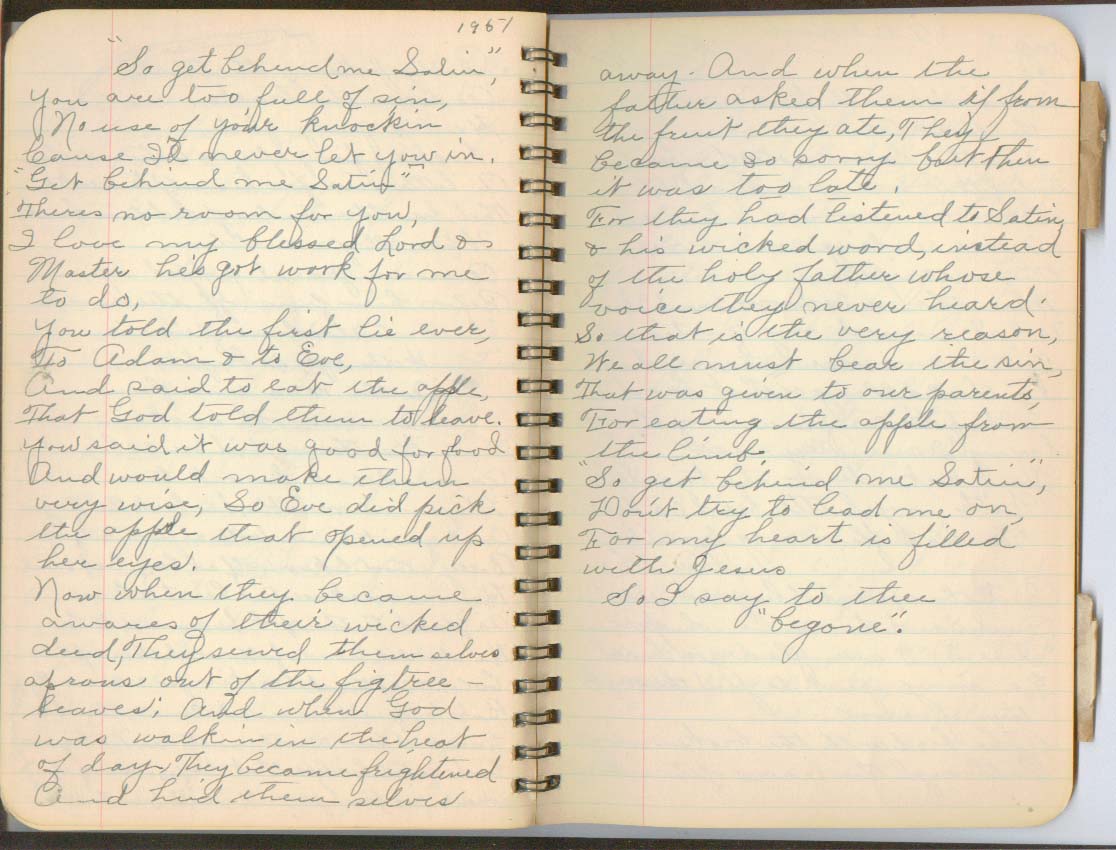 1957
"So get behind me Satin,"
You are too full of sin,
No use of your knockin
Cause I'l never let you in.
"Get behind me Satin"
Theres no room for you,
I love my blessed Lord &
Master he's got work for me
to do,
You told the first lie ever,
To Adam & to Eve,
And said to eat the apple,
That God told them to leave.
You said it was good for food
And would make them
very wise, So Eve did pick
the apple that opened up
her eyes.
Now when they became
awares of their wicked
deed, They sewed them selves
aprons out of the figtree -
leaves; And when God
was walkin in the heat
of day, They became frightened
And hid them selves
away. And when the
father asked them if from
the fruit they ate, They
became so sorry but then
it was too late.
For they had listened to Satin,
& his wicked word, instead
of the holy father whose
voice they never heard.
So that is the very reason,
We all must bear the sin,
That was given to our parents,
For eating the apple from
the limb.
"So get behind me Satin",
Don't try to lead me on,
For my heart is filled
with Jesus
So I say to thee
"begone".